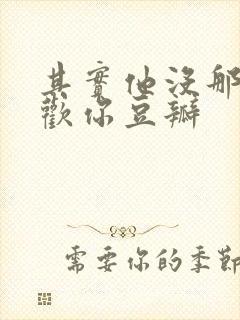 其實他沒那
歡你豆瓣
需要你的季節